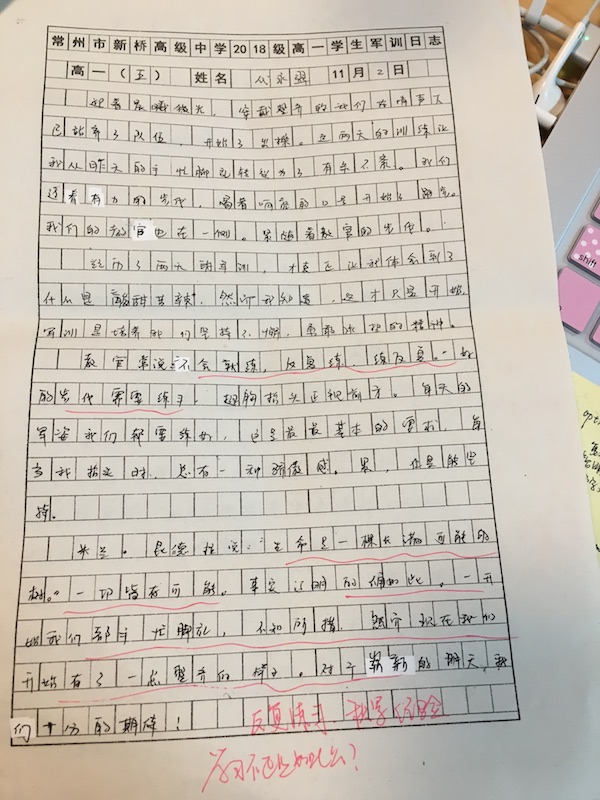 常州市新桥高级中学2018级高一学生军训日志
高一（五） 姓名 11月2日
已站齐了队伍，开始了 。这两天的训练让
我从昨天的手忙脚乱转 为了有条不紊。我们
迈着有力的步伐，喝着响亮的口号开始了跑步。
我们的教官也在一侧。紧随着教官的步伐。
经历了两天的军训，才真正让我体会到了
什么是"酸甜苦辣"，然而我知道，这才只是开始，
军训是培养我们坚持不懈，勇敢 的精神。
教官常说：不会就练，反复练，练反复。一切
的步伐需要练习，挺胸抬头正视前方。每天的
军姿我们都要练好，这是最最基本的要求，每
当我抬头时，总有一种骄傲感。累，但是能坚
持。
米兰。昆德拉说："生命是一棵长满可能的
树。"一切皆有可能。事实证明的确如此。一开
始我们都手忙脚乱，不知所措，然而现在我们
开始有了一点整齐的样子。对于崭新的明天我
们十分的期待！
反复练习，积累经验
学习不也是如此么？
op
shift